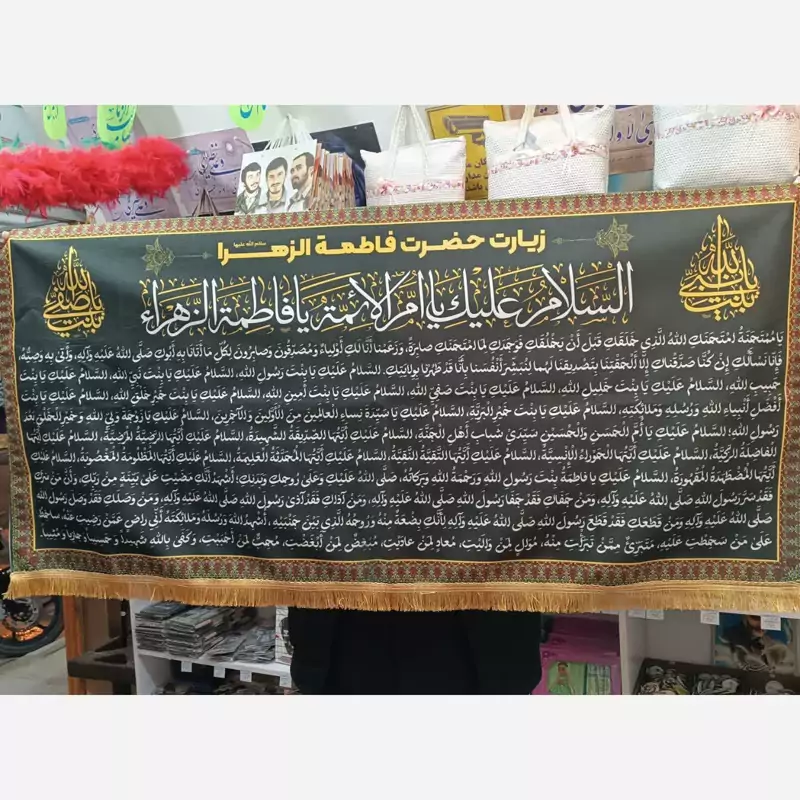 زیارت حضرت فاطمة الزهرا سلام الله علیها
السَّلامُ عَلَيْكِ يا اُمَّ الاَئِمَّةِ يا فاطِمَةُ الزَّهراءِ
يا بنت نبي الله
يا بنت صفي الله
يَا مُمْتَحَنَةُ امْتَحَنَكِ اللهُ الَّذِي خَلَقَكِ قَبْلَ أَنْ يَخْلُقَكِ فَوَجَدَكِ لِمَا امْتَحَنَكِ صابِرَةً، وَزَعَمْنا أَنَّا لَكِ أَوْلِياءُ وَمُصَدِّقُونَ وَصابِرُونَ لِكُلِّ مَا أَتانا بِهِ أَبُوكِ صَلَّى اللهُ عَلَيْهِ وَآلِهِ، وَأَتَى بِهِ وَصِيُّهُ،
فَإِنَّا نَسْأَلُكِ إِنْ كُنَّا صَدَّقْناكِ إِلَّا أَلْحَقْتِنا بِتَصْدِيقِنا لَهُما لِنُبَشِّرَ أَنْفُسَنا بِأَنَّا قَدْ طَهُرْنا بِوِلايَتِكِ. السَّلامُ عَلَيْكِ يَا بِنْتَ رَسُولِ اللهِ، السَّلامُ عَلَيْكِ يَا بِنْتَ نَبِيِّ اللهِ، السَّلامُ عَلَيْكِ يَا بِنْتَ
حَبِيبِ اللهِ، السَّلامُ عَلَيْكِ يَا بِنْتَ خَلِيلِ اللهِ، السَّلامُ عَلَيْكِ يَا بِنْتَ صَفِيِّ اللهِ، السَّلامُ عَلَيْكِ يَا بِنْتَ أَمِينِ اللهِ، السَّلامُ عَلَيْكِ يَا بِنْتَ خَيْرِ خَلْقِ اللهِ، السَّلامُ عَلَيْكِ يَا بِنْتَ
أَفْضَلِ أَنْبِياءِ اللهِ وَرُسُلِهِ وَمَلائِكَتِهِ، السَّلامُ عَلَيْكِ يَا بِنْتَ خَيْرِ الْبَرِيَّةِ، السَّلامُ عَلَيْكِ يَا سَيِّدَةَ نِساءِ الْعالَمِينَ مِنَ الْأَوَّلِينَ وَالْآخِرِينَ، السَّلامُ عَلَيْكِ يَا زَوْجَةَ وَلِيِّ اللهِ وَخَيْرِ الْخَلْقِ بَعْدَ
رَسُولِ اللهِ، السَّلامُ عَلَيْكِ يَا أُمَّ الْحَسَنِ وَالْحُسَيْنِ سَيِّدَيْ شَبابِ أَهْلِ الْجَنَّةِ، السَّلامُ عَلَيْكِ أَيَّتُهَا الصِّدِّيقَةُ الشَّهِيدَةُ، السَّلامُ عَلَيْكِ أَيَّتُهَا الرَّضِيَّةُ الْمَرْضِيَّةُ، السَّلامُ عَلَيْكِ أَيَّتُهَا
الْفاضِلَةُ الزَّكِيَّةُ، السَّلامُ عَلَيْكِ أَيَّتُهَا الْحَوْراءُ الْإِنْسِيَّةُ، السَّلامُ عَلَيْكِ أَيَّتُهَا التَّقِيَّةُ النَّقِيَّةُ، السَّلامُ عَلَيْكِ أَيَّتُهَا الْمُحَدَّثَةُ الْعَلِيمَةُ، السَّلامُ عَلَيْكِ أَيَّتُهَا الْمَظْلُومَةُ الْمَغْصُوبَةُ، السَّلامُ عَلَيْكِ
أَيَّتُهَا الْمُضْطَهَدَةُ الْمَقْهُورَةُ، السَّلامُ عَلَيْكِ يَا فاطِمَةُ بِنْتَ رَسُولِ اللهِ وَرَحْمَةُ اللهِ وَبَرَكاتُهُ، صَلَّى اللهُ عَلَيْكِ وَعَلَى رُوحِكِ وَبَدَنِكِ، أَشْهَدُ أَنَّكِ مَضَيْتِ عَلَى بَيِّنَةٍ مِنْ رَبِّكِ، وَأَنَّ مَنْ سَرَّكِ
فَقَدْ سَرَّ رَسُولَ اللهِ صَلَّى اللهُ عَلَيْهِ وَآلِهِ، وَمَنْ جَفاكِ فَقَدْ جَفا رَسُولَ اللهِ صَلَّى اللهُ عَلَيْهِ وَآلِهِ، وَمَنْ آذاكِ فَقَدْ آذَى رَسُولَ اللهِ صَلَّى اللهُ عَلَيْهِ وَآلِهِ، وَمَنْ وَصَلَكِ فَقَدْ وَصَلَ رَسُولَ اللهِ
صَلَّى اللهُ عَلَيْهِ وَآلِهِ وَمَنْ قَطَعَكِ فَقَدْ قَطَعَ رَسُولَ اللهِ صَلَّى اللهُ عَلَيْهِ وَآلِهِ لِأَنَّكِ بَضْعَةٌ مِنْهُ وَرُوحُهُ الَّذِي بَيْنَ جَنْبَيْهِ، أُشْهِدُ اللهَ وَرُسُلَهُ وَمَلائِكَتَهُ أَنِّي راضٍ عَمَّنْ رَضِيتِ عَنْهُ، ساخِطٌ
عَلَى مَنْ سَخِطْتِ عَلَيْهِ، مُتَبَرِّئٌ مِمَّنْ تَبَرَّأْتِ مِنْهُ، مُوالٍ لِمَنْ والَيْتِ، مُعادٍ لِمَنْ عادَيْتِ، مُبْغِضٌ لِمَنْ أَبْغَضْتِ، مُحِبٌّ لِمَنْ أَحْبَبْتِ، وَكَفَى بِاللهِ شَهِيدًا وَحَسِيبًا وَجازِيًا وَمُثِيبًا.